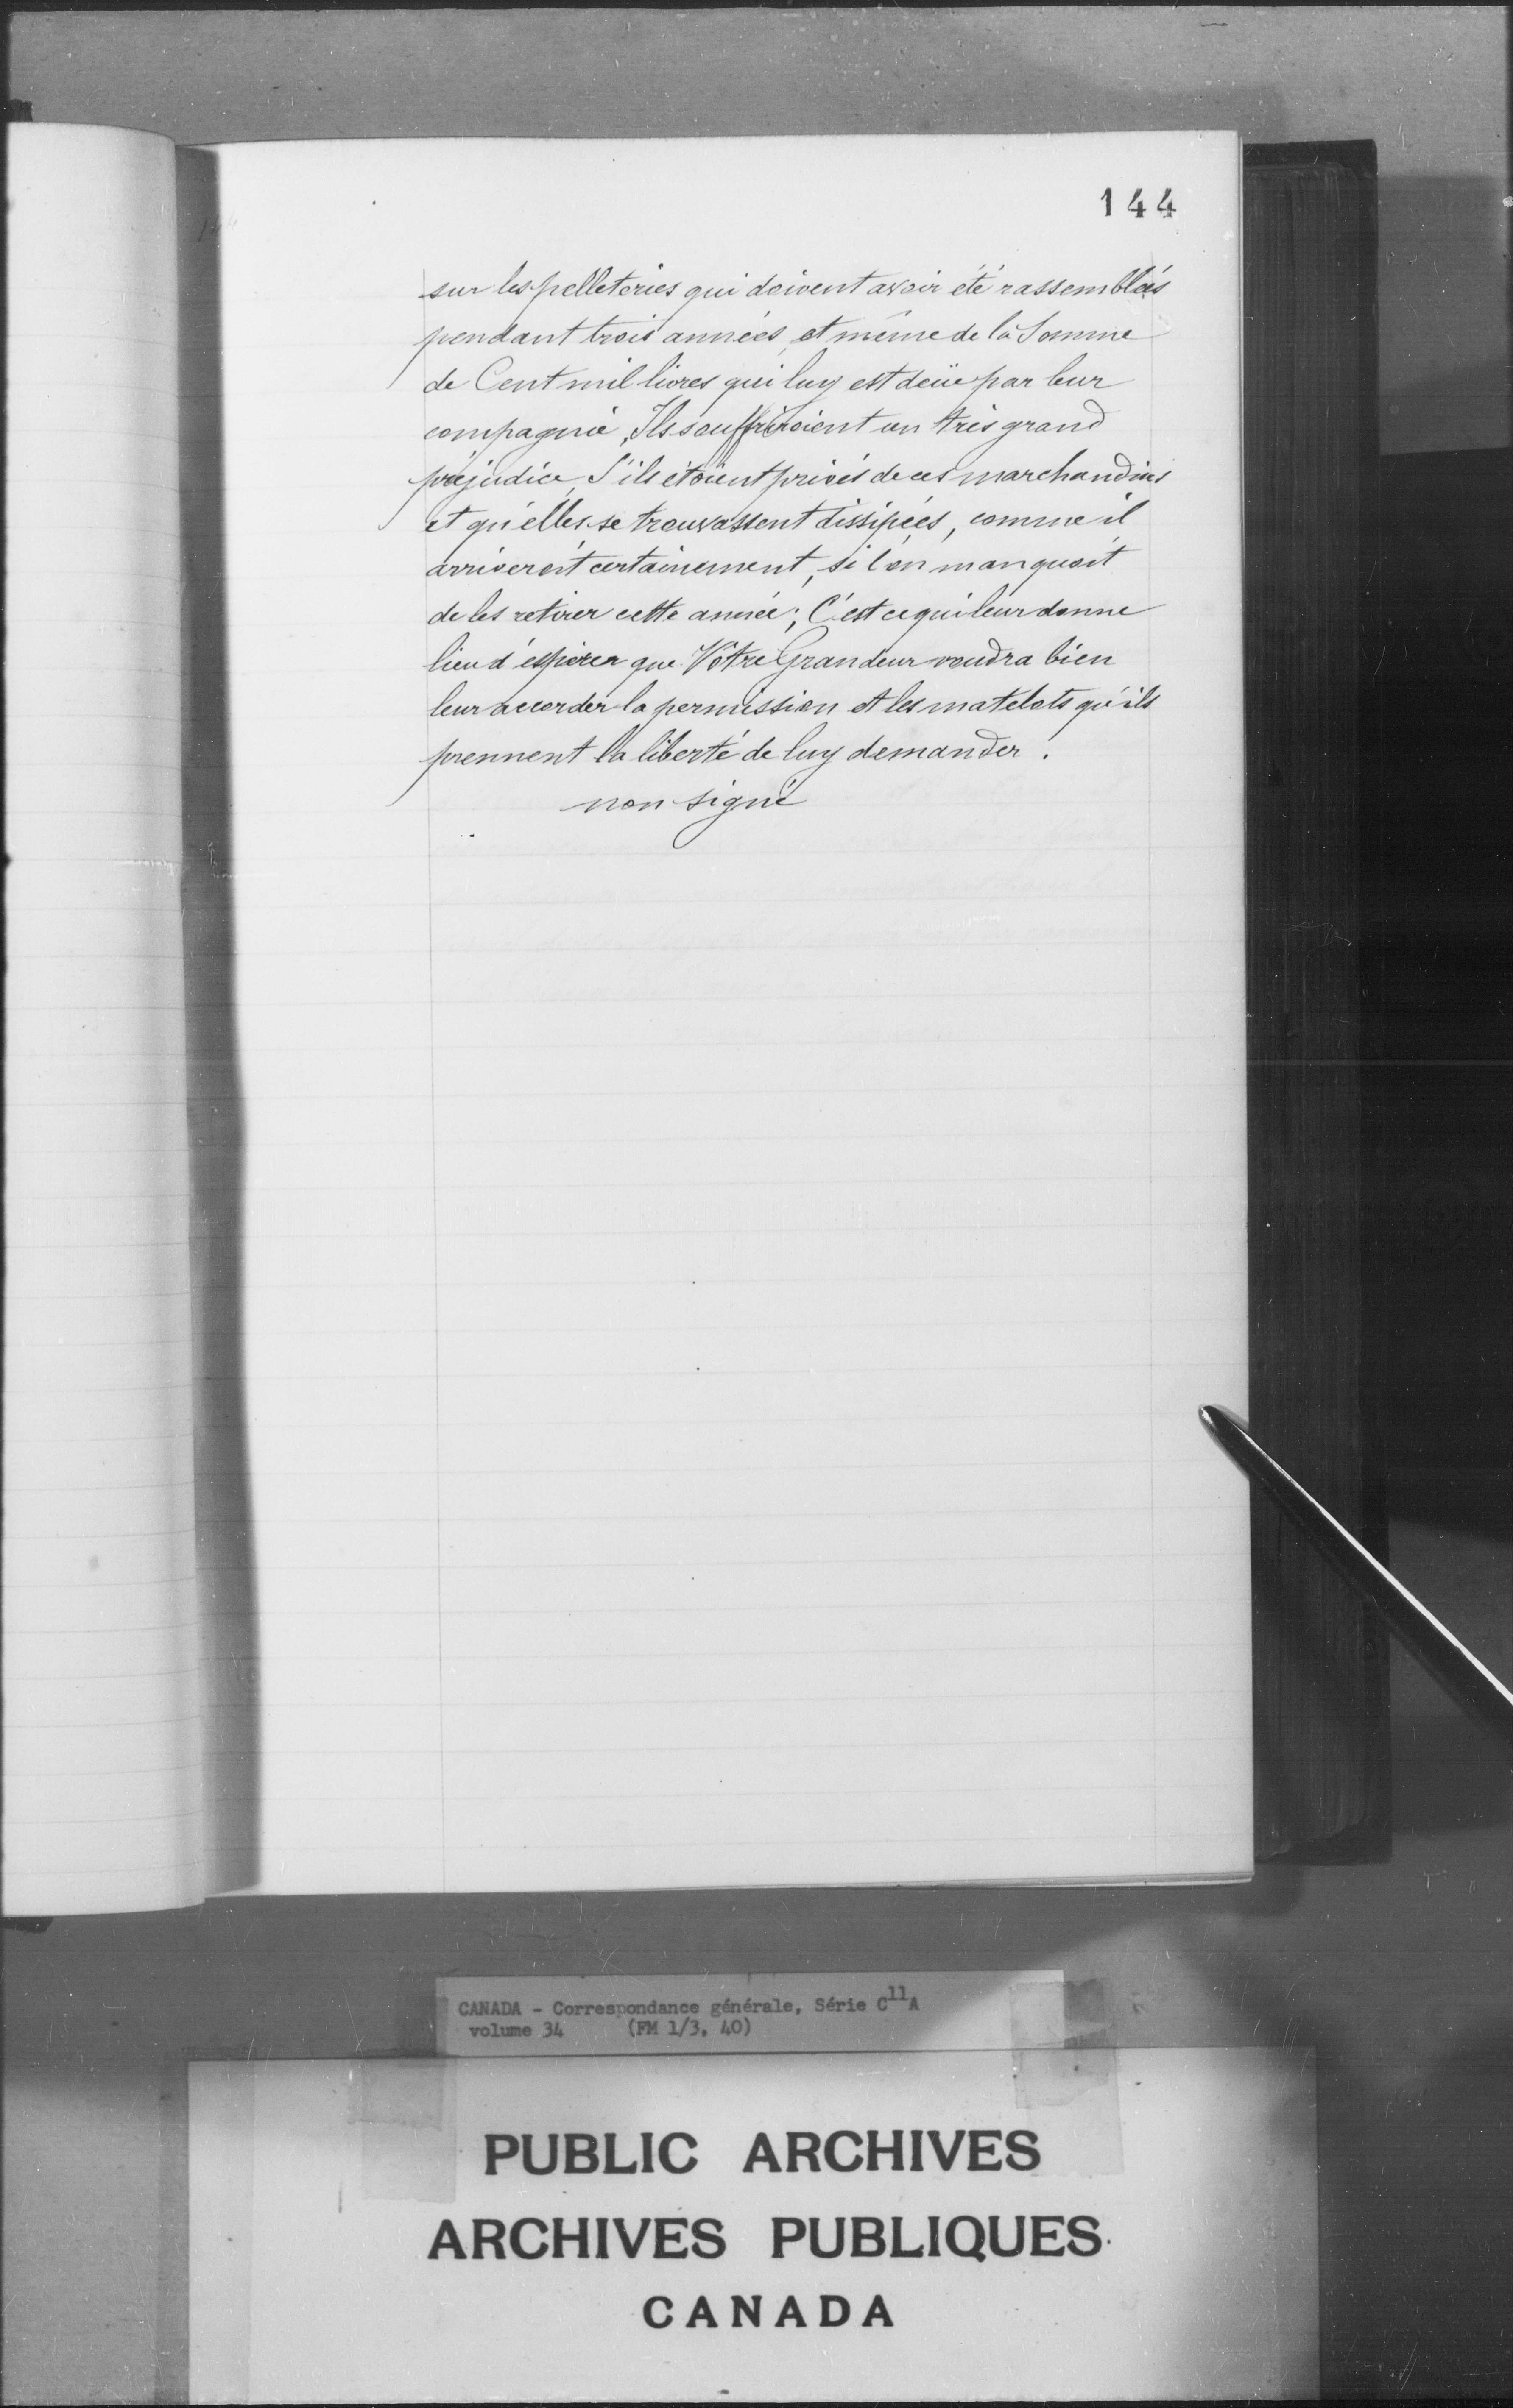 144
sur les pelleteries qui doivent avoir été rassemblées
pendant trois années, et même de la Somme
de Cent mil livres qui luy est deüe par leur
compagnie, Ils souffriroient un très grand
préjudice, S'ils étoient privés de ces marchandises
et qu'elles se trouvassent dissipées, comme il
arriveroit certainement, si l'on manquoit
de les retirer cette année; C'est ce qui leur donne
lieu d'espérer que Vôtre Grandeur voudra bien
leur accorder la permission et les matelots qu'ils
prennent la liberté de luy demander.
non signé
CANADA - Correspondance générale, Série C11A
volume 34 (FM 1/3, 40)
PUBLIC ARCHIVES
ARCHIVES PUBLIQUES
CANADA